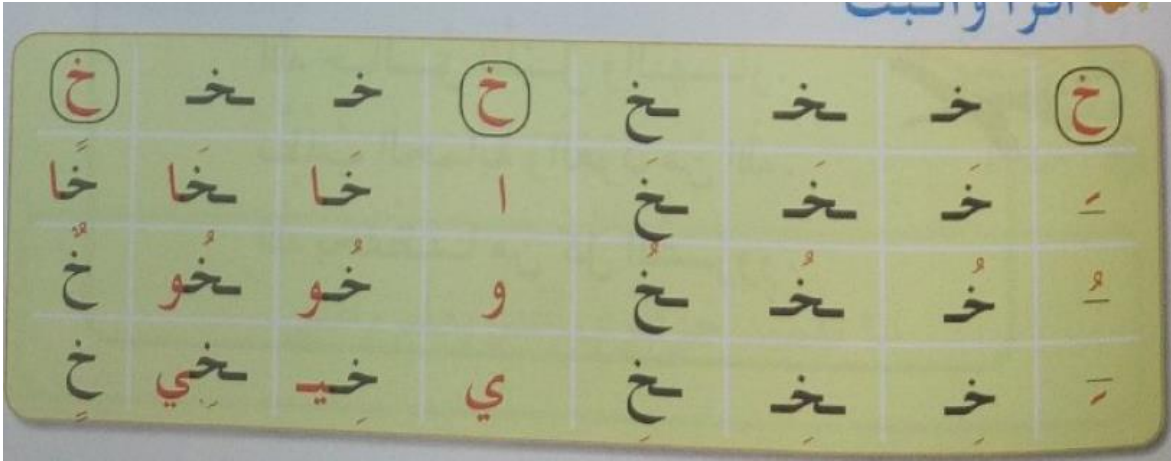 خ خـ ـخـ ـخ خ خـ ـخـ خ
ـَ خَـ ـخَـ ـخَ ا خَـا ـخَا خًا
ـُ خُـ ـخُـ ـخُ و خُـو ـخُو خٌ
ـِ خِـ ـخِـ ـخِ ي خِـيـ ـخِي خٍ